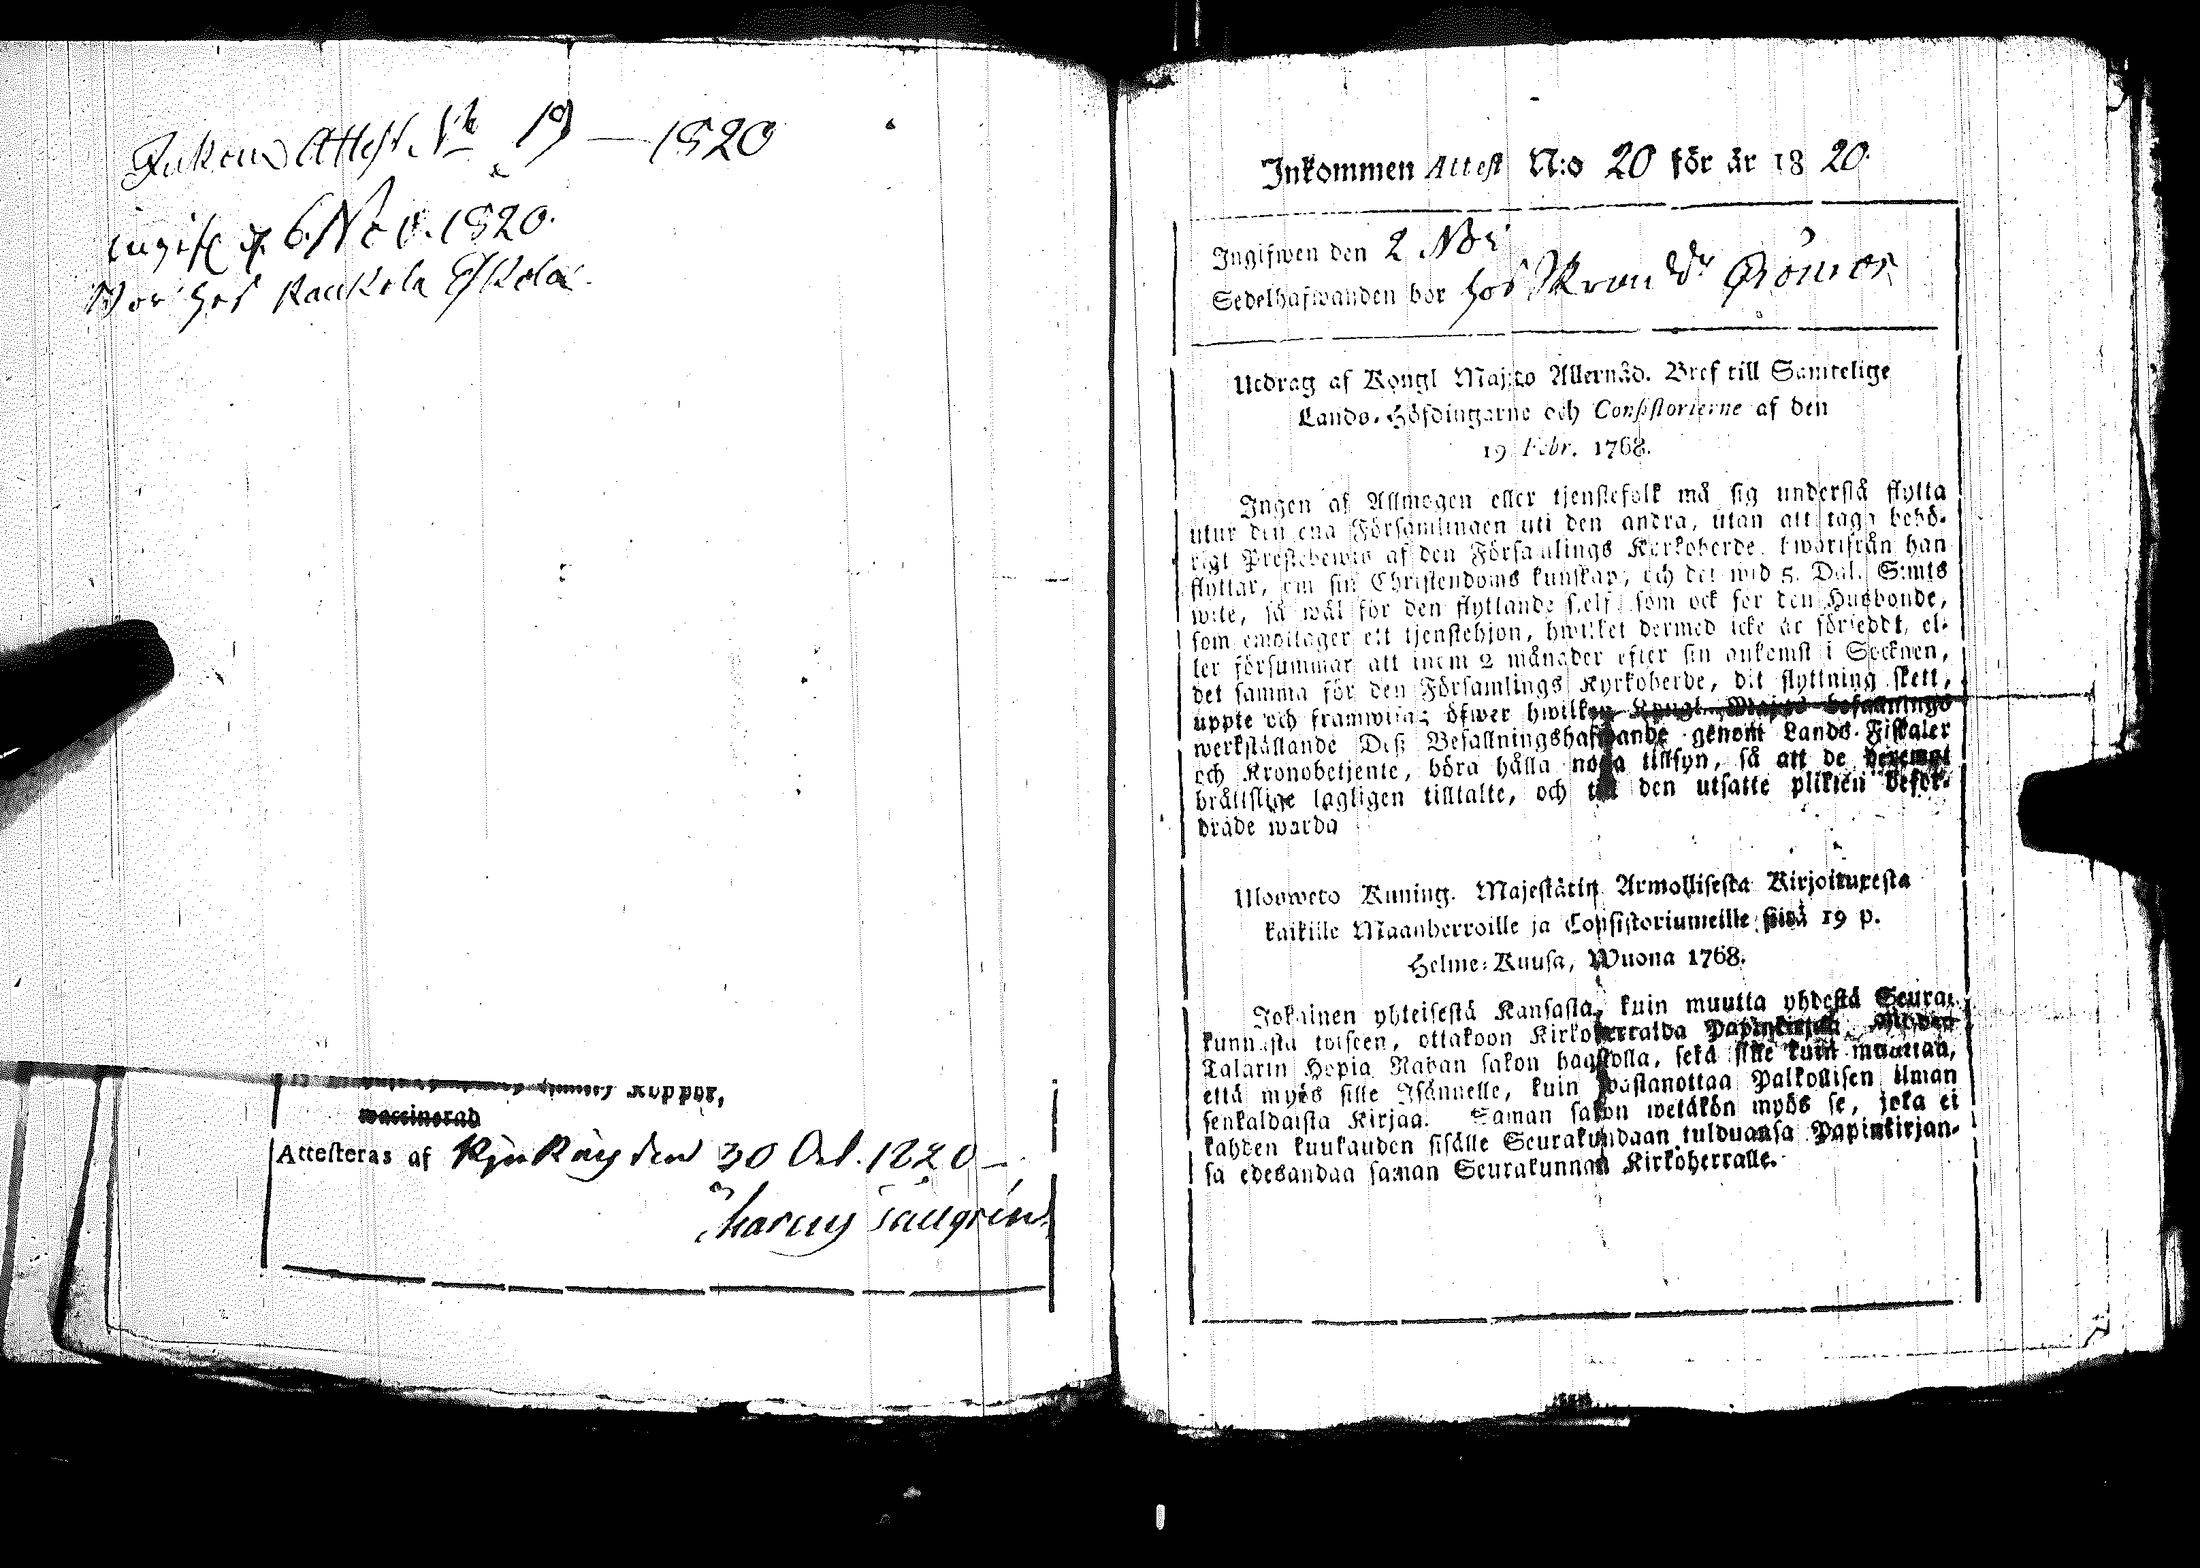 Inkom Attest No 19 — 1820
ingifv. d. 6 Nov. 1820.
Bor hos Kaukola Eskola.
Koppor,
waccinerad
Attesteras af Kjuking den 30 Oct. 1820
Inkommen Attest N:o 20 för år 1820.
Ingifwen den 2 Nov
Sedelhafwanden bor hos
Utdrag af Kongl Maj:ts Allernåd. Bref till Samtelige
Lands-Höfdingarne och Consistorierne af den
19 Febr. 1768.
Ingen af Allmogen eller tjenstefolk må sig understå flytta
utur den ena Församlingen uti den andra, utan att taga behö-
rigt Prestebewis af den Församlings Kyrkoherde, hwarifrån han
flyttar, om sin Christendoms kunskap, och det wid 5. Dal. S:mts
wite, så wäl för den flyttande sielf, som ock för den Husbonde,
som emottager ett tjenstehjon, hwilket dermed icke är försedt, el-
ler försummar att inom 2 månader efter sin ankomst i Socknen,
det samma för den Församlings Kyrkoherde, dit flyttning skett,
uppte och framwisa; öfwer hwilken Kongl. Maj:ts befallnings
werkställande Deß Befallningshafwande genom Lands-Fiskaler
och Kronobetjente, böra hålla noga tillsyn, så att de deremot
bråttslige lagligen tilltalte, och till den utsatte plikten befor-
drade warda
Ulosweto Kuning. Majestätin Armollisesta Kirjoituxesta
kaikille Maanherroille ja Consistoriumeille siitä 19 p.
Helme-Kuusa, Wuona 1768.
Jokainen yhteisestä Kansasta, kuin muutta yhdestä Seura-
kunnasta toiseen, ottakoon Kirkoherralda Papinkirjan, wijden
Talarin Hopia Rahan sakon haastolla, sekä sille kuin muuttaa,
että myös sille Isännelle, kuin wastanottaa Palkollisen ilman
senkaldaista Kirjaa. Saman sakon wetäkön myös se, joka ei
kahden kuukauden sisälle Seurakundaan tulduansa Papinkirjan-
sa edesandaa saman Seurakunnan Kirkoherralle.